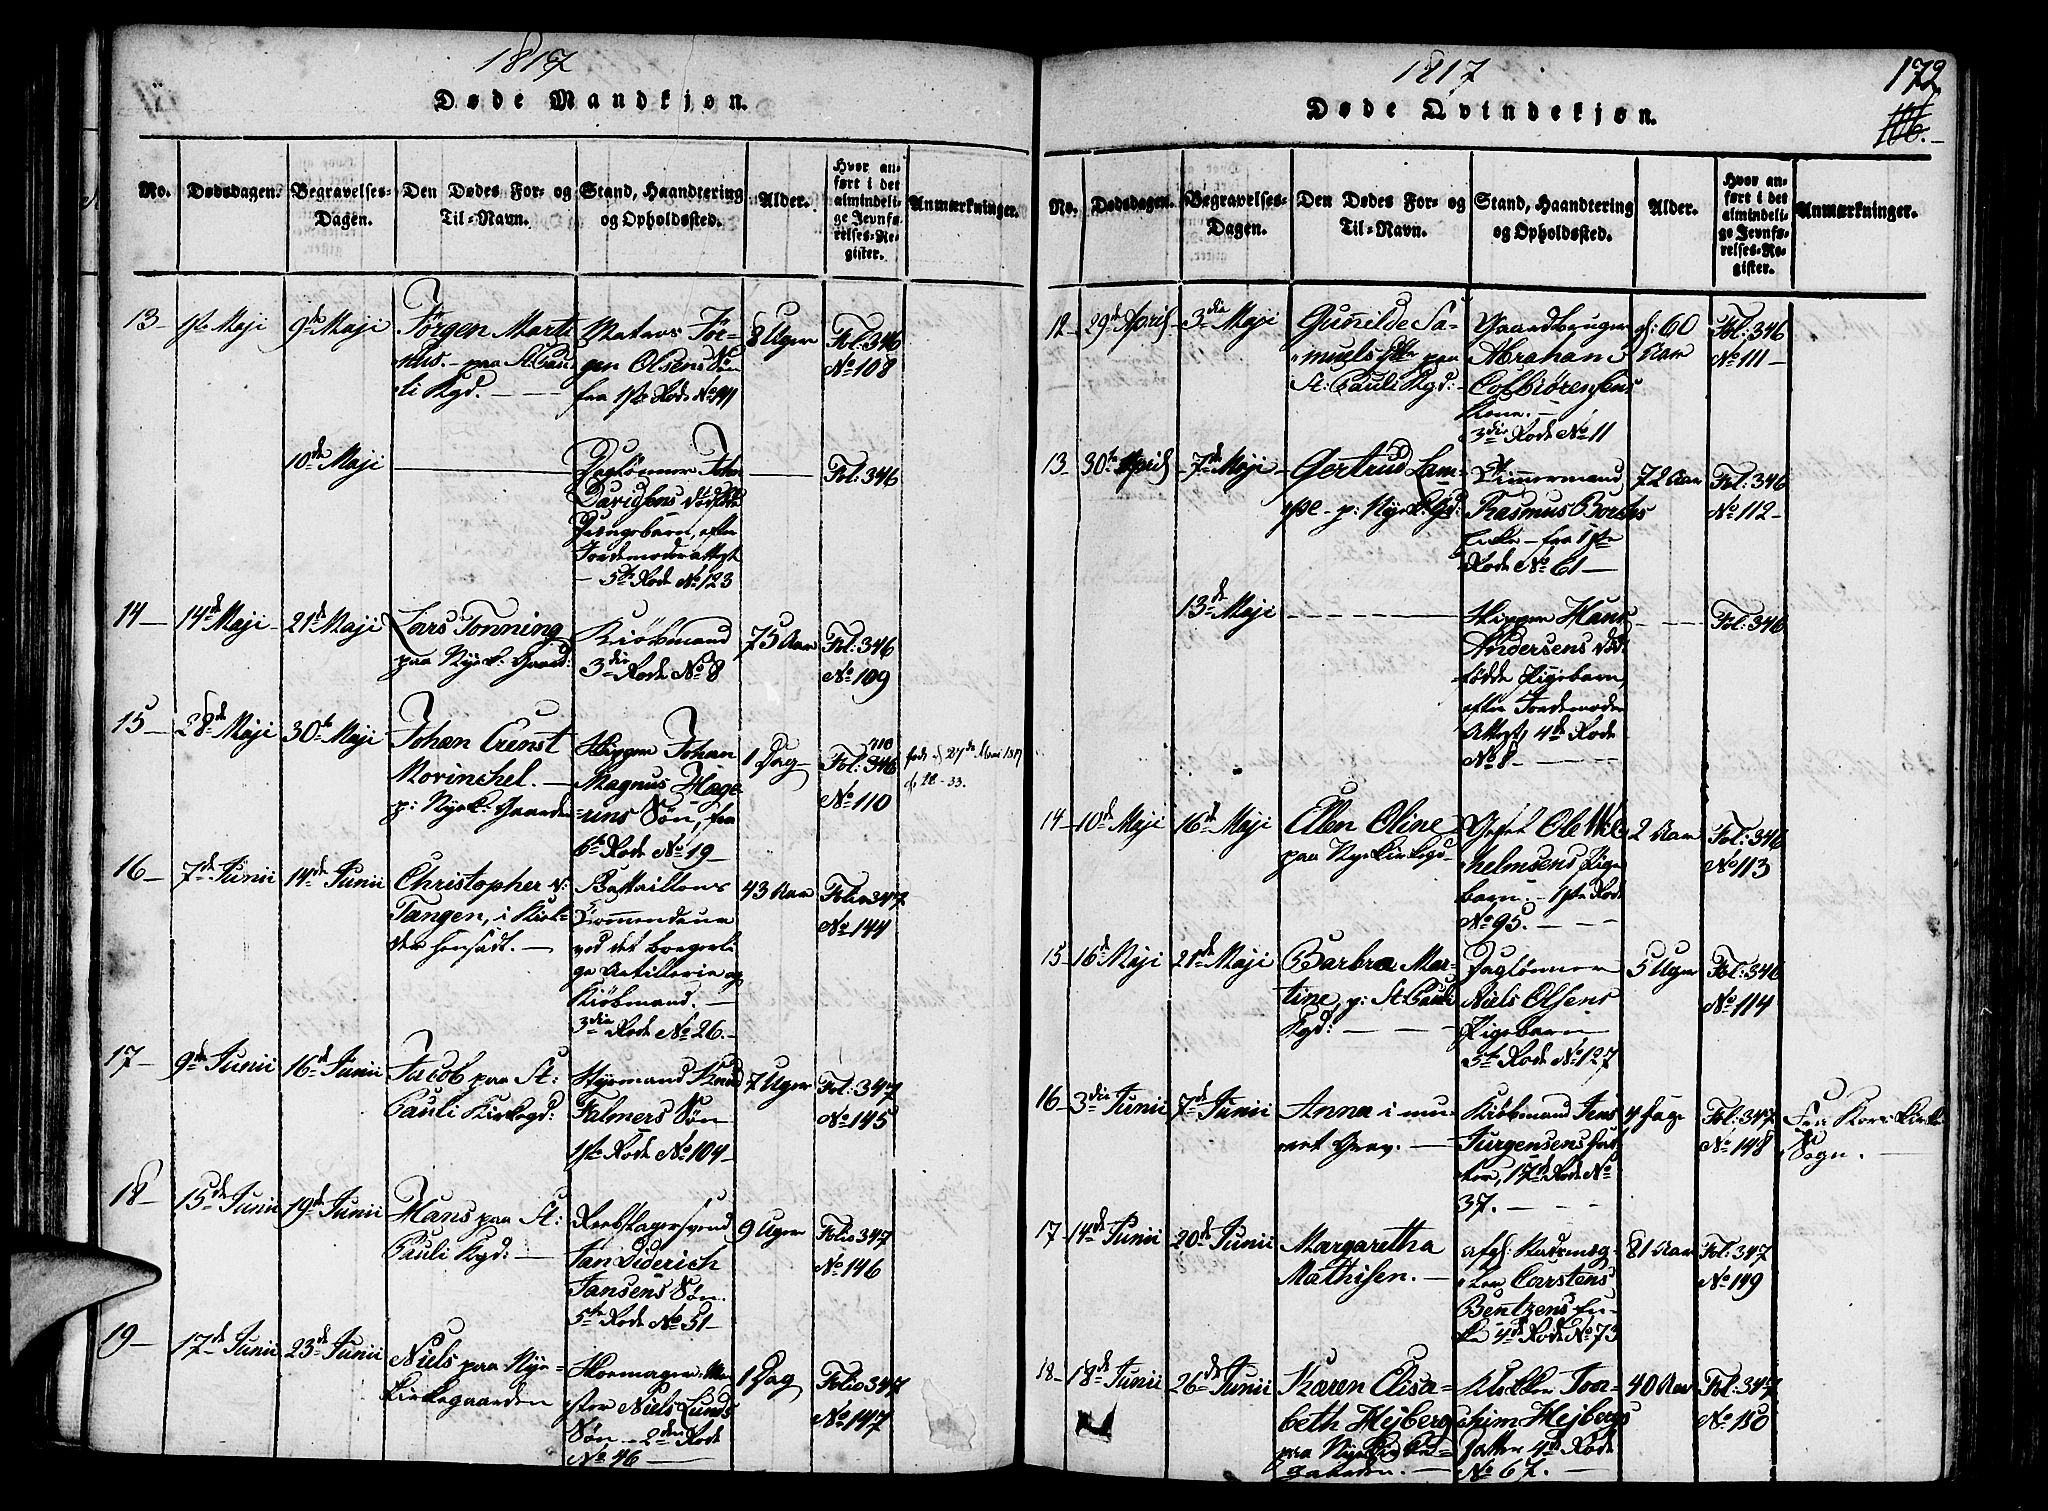 1817
Døde Mandkjøn.
No.
Dødsdagen.
Begravelses-
Dagen.
Den Dødes For- og
Til-Navn.
Stand, Haandtering
og Opholdssted.
Alder.
Hvor an-
ført i det
almindeli-
ge Jevnfø-
relses-Re-
gister.
Anmærkninger.
13 1ste Maji 9de Maji Jörgen Marti
nus. paa St. Pau-
li Kgd.
Matros Jör-
gen Olsens Sön
fra 1ste Rode No 141
8 Uger
Fol: 346
No 108
10de Maji
Daglönner John
Davidsens
Drengebarn, efter
Jordemoderattest
5te Rode No 123
Fol: 346
14 14de Maji 21de Maji Lars Tonning
paa Nyek. Gaard:
Kiöbmand
3die Rode No 8
75 Aar
Fol: 346
No 109
15 28de Maji 30te Maji Johan Ernst
Morinchel.
p: Nyek: Gaarden
Skipper Johan
Magnus Hage
runs Sön, fra
6te Rode No 19
1 Dag
110
Fol: 346
No 110
föde d 27de Mai 1817
16 7de Junii 14de Junii Christopher v:
Tangen, i Kirk-
den hensadt.
Battaillons
Commendeur
ved det borgerli
ge Artillerie og
Kiöbmand.
3die Rode No 26.
43 Aar
Folio 347
No 144
17 9de Junii 16de Junii Jacob paa St:
Pauli Kirkegd:
Styrmand Knud
Falmers Sön
1ste Rode No 104
7 Uger
Fol: 347
No 145
18 15de Junii 19de Junii Hans paa St:
Pauli Kgd:
Reebslagersvend
Jan Diderich
Jansens Sön.
5te Rode No 51
9 Uger
Folio 347
No 146
19 17de Junii 23de Junii Niels paa Nye-
kirkegaarden
Skomager-Me
ster Niels Lunds
Sön - 2den Rode
No 46
1 Dag
Folio 347
No 147
1817
172
166.
Døde Qvindekjøn.
No.
Dødsdagen.
Begravelses-
Dagen.
Den Dødes For- og
Til-Navn.
Stand, Haandtering
og Opholdssted.
Alder.
Hvor an-
ført i det
almindeli-
ge Jevnfø-
relses-Re-
gister.
Anmærkninger.
12 29de April 3die Maji Gunilde Sa-
muels paa
St: Pauli Kgd:
Gaardbruger
Abraham
Colbiörensens
Kone.
3die Rode No 11
60
Aar
Fol: 346
No 111
13 30te April 7de Maji Gertrud Lam-
pe - p: Nyek: Kgd:
Timmermand
Rasmus Borchs
Enke - fra 1ste
Rode No 61
72 Aar
Fol: 346
No 112
13de Maji
Skipper Hans
Andersens död
födde Pigebarn,
efter Jordemoder
Attest, 4de Rode
No 8
Fol: 346
14 10de Maji 16de Maji Ellen Oline
paa Nyekirkegd
Ole Wil
helmsens Pige
barn - 1ste Rode
No 95.
2 Aar
Fol: 346
No 113
15 16de Maji 21de Maji Barbra Mar-
tine, p: St. Pauli
Kgd:
Daglönner
Niels Olsens
Pigebarn
5te Rode No 127
5 Uger
Fol: 346
No 114
16 3die Junii 7de Junii Anna i mu
ret Grav.
Kiöbmand Jens
Jurgensens Dat
ter, 17de Rode No
37.
4 Dage
Fol: 347
No 148
Fra Kors Kirke
Sogn.
17 14de Junii 20de Junii Margaretha
Mathisen.
afg: Kudsmæg-
ler Carstens
Bentzens En-
ke 4de Rode No 73
81 Aar
Fol: 347
No 149
18 18de Junii 26de Junii Karen Elisa-
beth Hejbergs
paa Nyekirke
gaarden.
Klokker Joa-
chim Hejbergs
Datter 4de Rode
No 67.
40 Aar
Fol: 347
No 150